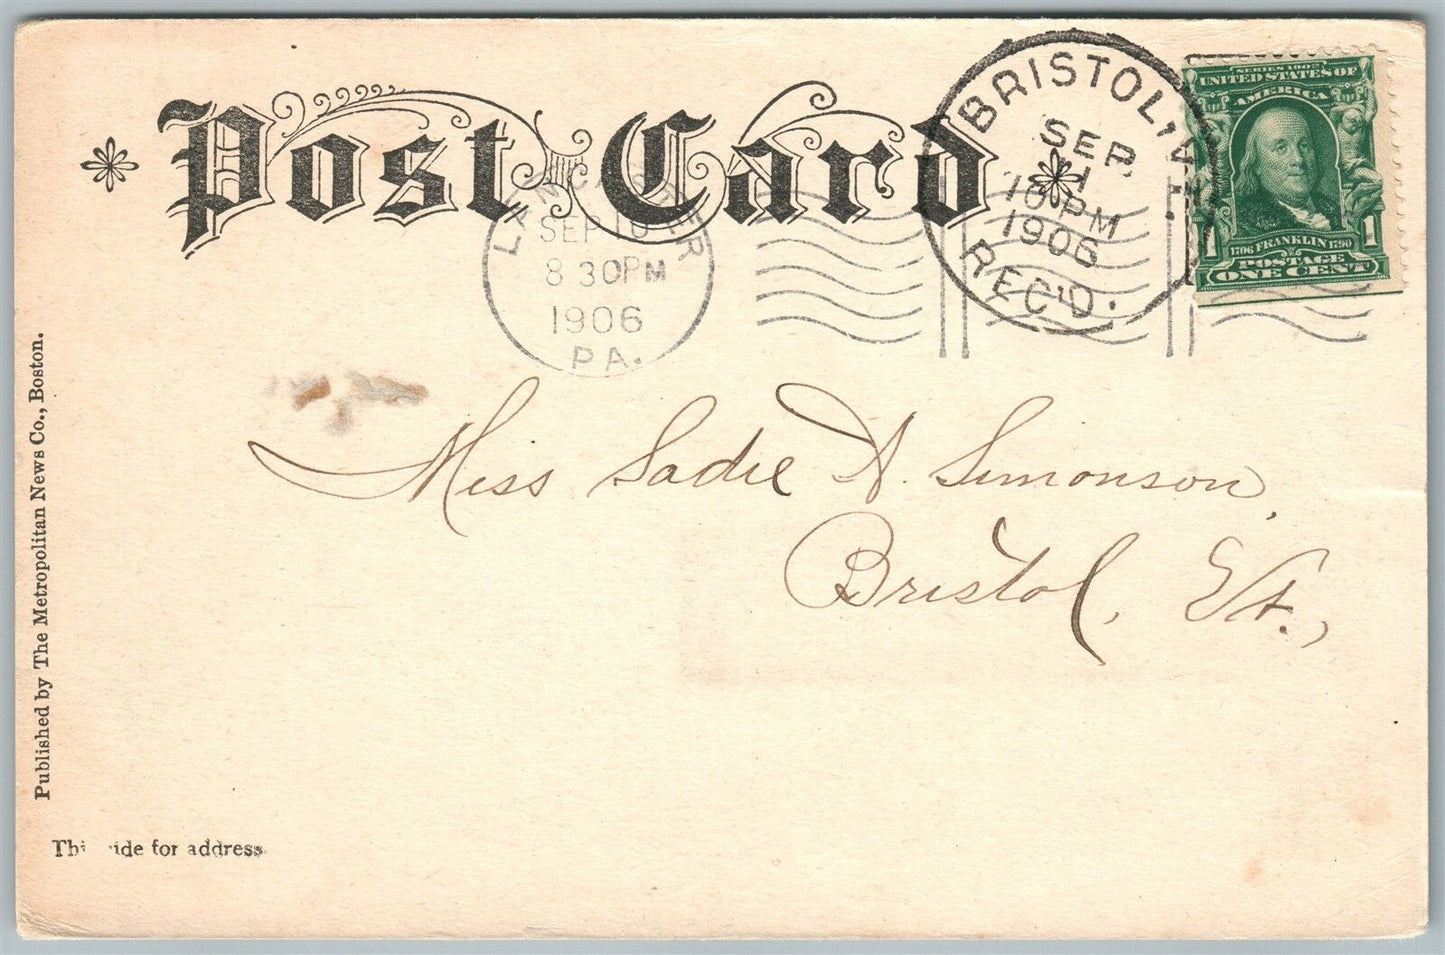 Post Card
LANCASTER
SEP 10
8 30PM
1906
PA.
BRISTOL, VT.
SEP
1906
REC'D.
SERIES 1902
UNITED STATES OF
AMERICA
1 1
1706 FRANKLIN 1790
POSTAGE
ONE CENT
Miss Sadie A. Simonson,
Bristol, Vt.,
Published by The Metropolitan News Co., Boston.
This side for address